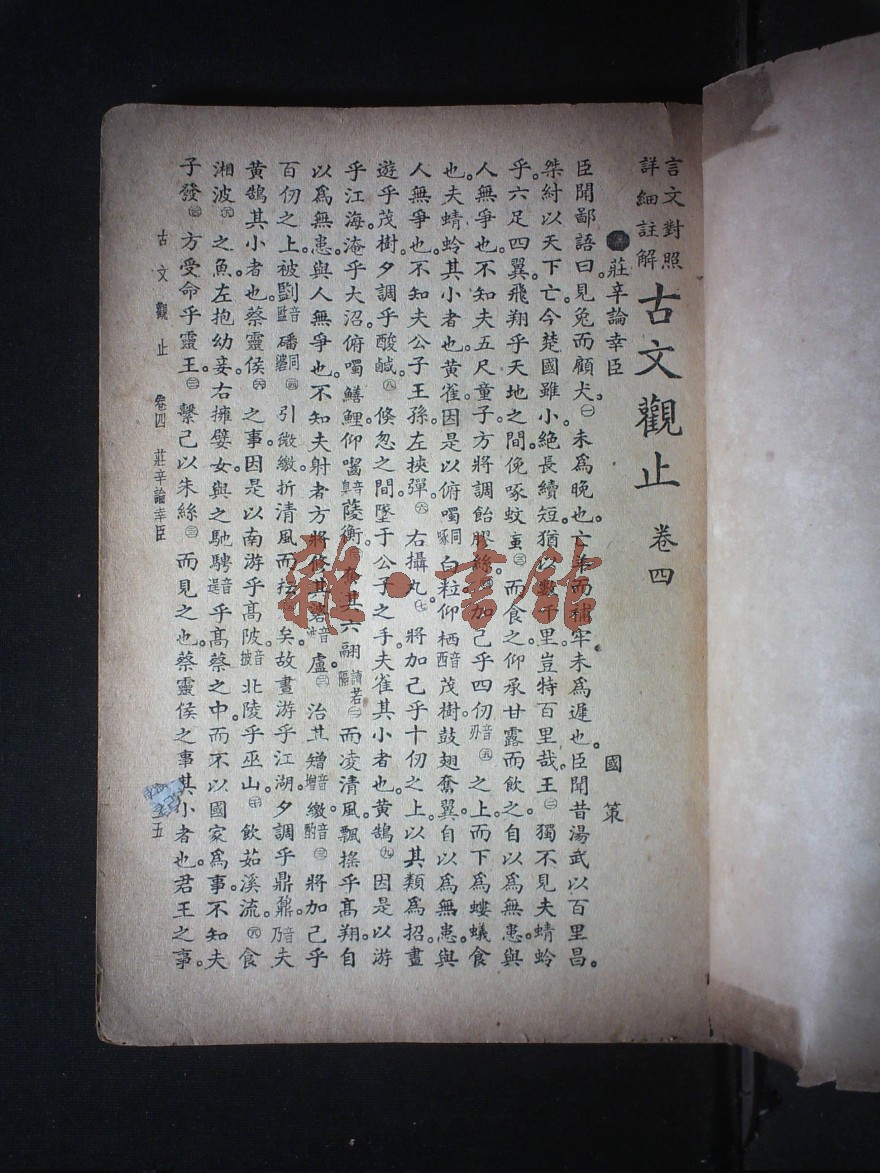 言文對照
詳細註解
古文觀止 卷四
莊辛論幸臣 國策
臣聞鄙語曰。見兔而顧犬。㊀未爲晚也。亡羊而補牢。未爲遲也。臣聞昔湯武以百里昌。
桀紂以天下亡。今楚國雖小。絕長續短。猶以數千里。豈特百里哉。王㊁獨不見夫蜻蛉
乎。六足四翼。飛翔乎天地之間。俛啄蚊䖟㊂而食之。仰承甘露而飲之。自以爲無患。與
人無爭也。不知夫五尺童子。方將調飴膠絲。㊃加己乎四仞音刃㊄之上。而下爲螻蟻食
也。夫蜻蛉其小者也。黃雀因是以。俯噣同啄白粒。仰栖音西茂樹。鼓翅奮翼。自以爲無患。與
人無爭也。不知夫公子王孫。左挾彈。㊅右攝丸。㊆將加己乎十仞之上。以其類爲招。晝
遊乎茂樹。夕調乎酸鹹。㊇倏忽之間。墜于公子之手。夫雀其小者也。黃鵠㊈因是以。游
乎江海。淹乎大沼。俯噣鱔鯉。仰嚙音臬䔖衡。其六翮讀若隔而凌清風。飄搖乎高翔。自
以爲無患。與人無爭也。不知夫射者。方將修其盧。治其矰音增繳音酌將加己乎
百仞之上。被劉音監磻同引微繳。折清風而抎矣。故晝游乎江湖。夕調乎鼎鼐。音乃夫
黃鵠其小者也。蔡靈侯之事因是以。南游乎高陂。音披北陵乎巫山。飲茹溪流。食
湘波之魚。左抱幼妾。右擁嬖女。與之馳騁音逞乎高蔡之中。而不以國家爲事。不知夫
子發方受命乎靈王。繫己以朱絲而見之也。蔡靈侯之事其小者也。君王之事。
古文觀止 卷四 莊辛論幸臣 五
雜·書館